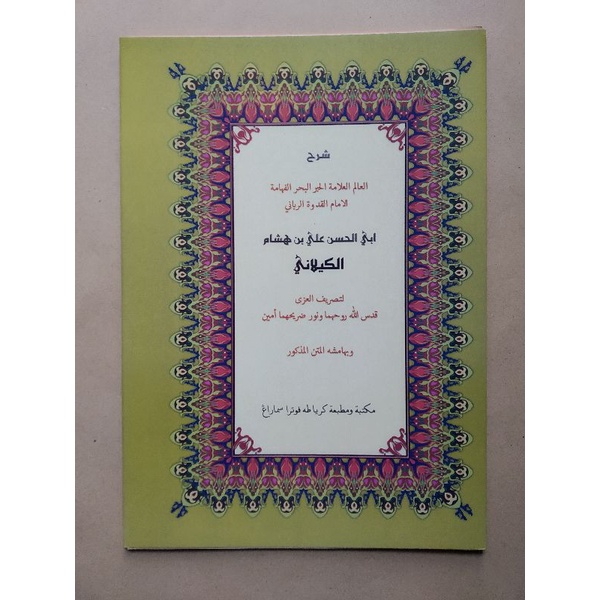 شرح
العالم العلامة الحبر البحر الفهامة
الامام القدوة الرباني
ابي الحسن علي بن هشام
الكيلاني
لتصريف العزى
قدس الله روحهما ونور ضريحهما أمين
وبهامشه المتن المذكور
مكتبة ومطبعة كرياطه فوترا سماراغ